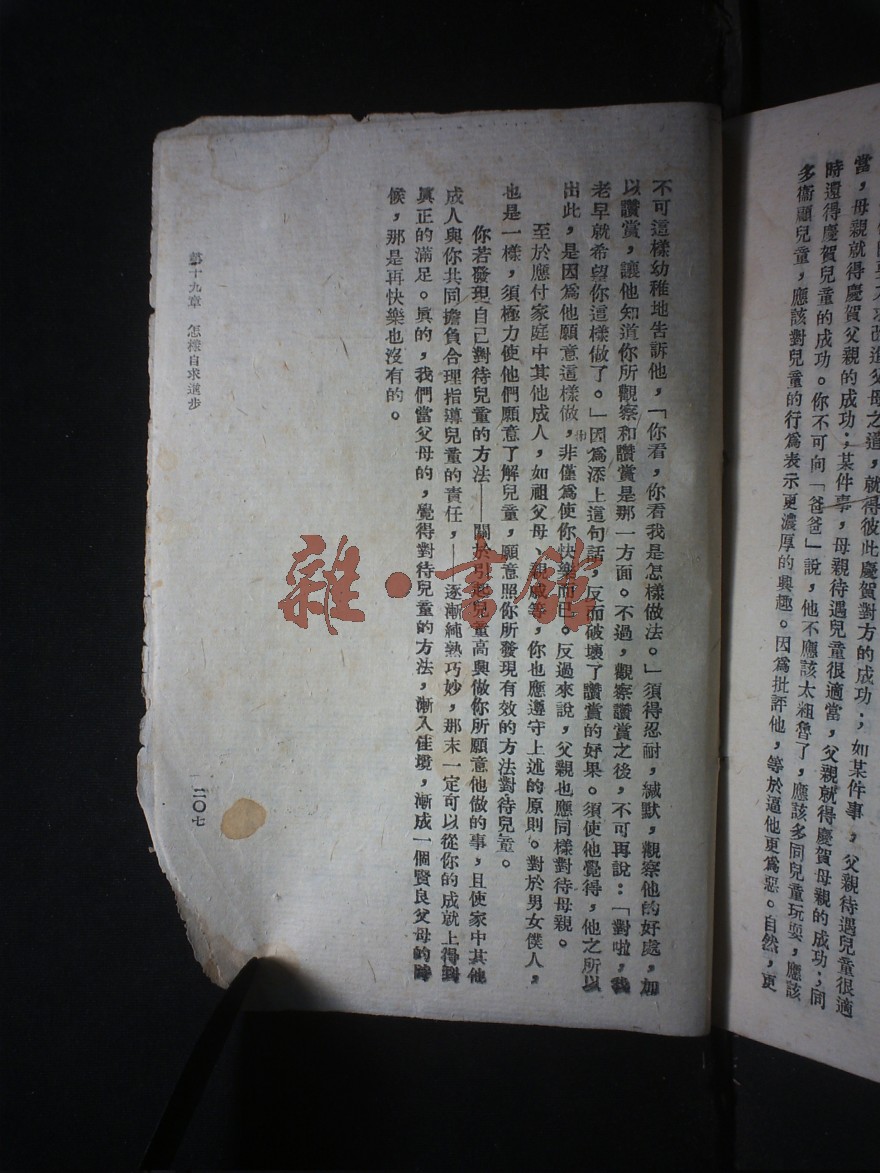 求改進父母之道，就得彼此慶賀對方的成功；如某件事，父親待遇兒童很適
當，母親就得慶賀父親的成功；某件事，母親待遇兒童很適當，父親就得慶賀母親的成功；同
時還得慶賀兒童的成功。你不可向「爸爸」說，他不應該太粗魯了，應該多同兒童玩耍，應該
多衞顧兒童，應該對兒童的行爲表示更濃厚的興趣。因爲批評他，等於逼他更爲惡。自然，更
不可這樣幼稚地告訴他，「你看，你看我是怎樣做法。」須得忍耐，緘默，觀察他的好處，加
以讚賞，讓他知道你所觀察和讚賞是那一方面。不過，觀察讚賞之後，不可再說：「對啦，我
老早就希望你這樣做了。」因爲添上這句話，反而破壞了讚賞的好果。須使他覺得，他之所以
出此，是因爲他願意這樣做，非僅爲使你快樂而已。反過來說，父親也應同樣對待母親。
至於應付家庭中其他成人，如祖父母、親戚等，你也應遵守上述的原則。對於男女僕人，
也是一樣，須極力使他們願意了解兒童，願意照你所發現有效的方法對待兒童。
你若發現自己對待兒童的方法——關於引起兒童高興做你所願意他做的事，且使家中其他
成人與你共同擔負合理指導兒童的責任，——逐漸純熟巧妙，那末一定可以從你的成就上得到
眞正的滿足。眞的，我們當父母的，覺得對待兒童的方法，漸入佳境，漸成一個賢良父母的時
候，那是再快樂也沒有的。
第十九章　怎樣自求進步
二〇七
雜·書館